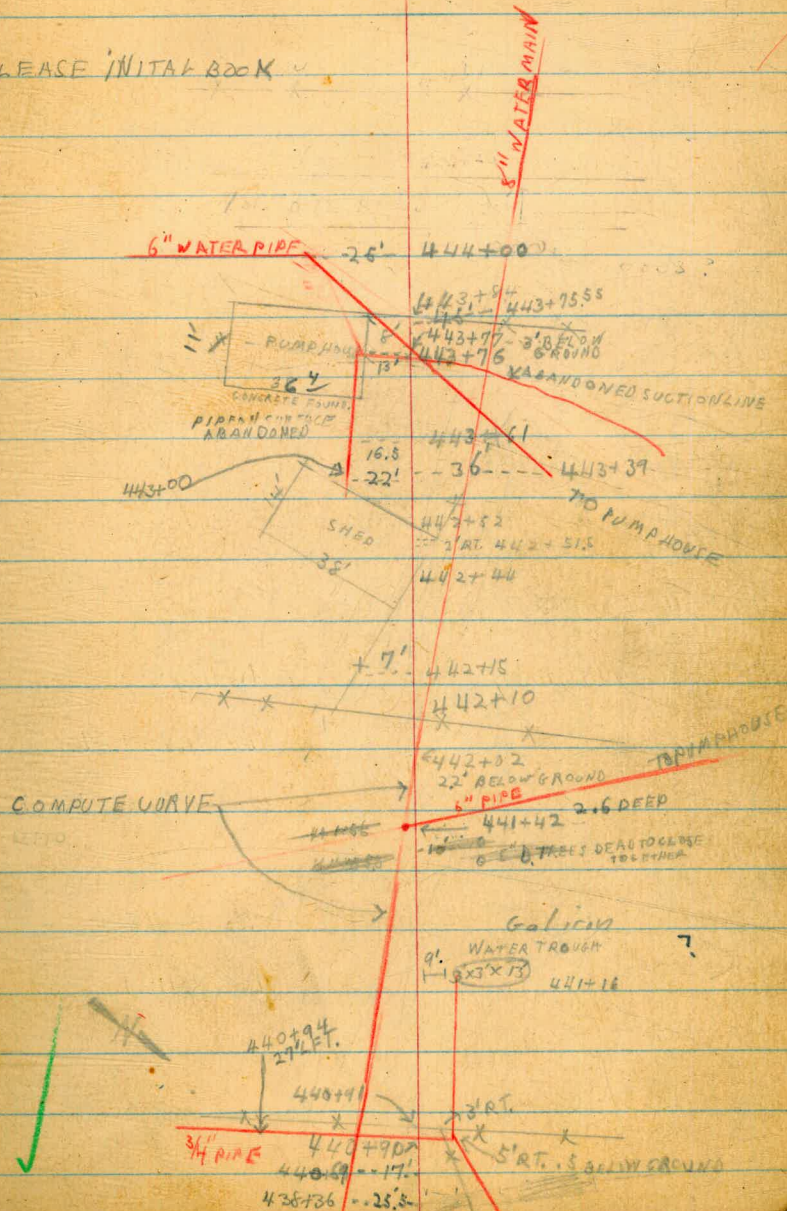 LEASE INITAL BOOK
8" WATER MAIN
6" WATER PIPE
25' 444+00
443+84
45' 443+75.55
8' 443+77 3' BELOW GROUND
11' PUMPHOU
13' 443+76
36'
CONCRETE FOUND.
ABANDONED
ABANDONED SUCTION LINE
443+61
16.5
22' 36' 443+39
443+00
TO PUMPHOUSE
14'
SHED
38'
442+52
2' RT. 442+51.5
442+44
7' 442+15
442+10
442+02
2.2' BELOW GROUND
TO PUMPHOUSE
6" PIPE
2.6 DEEP
COMPUTE CURVE
441+42
10'
TREES DEAD TO CLOSE
TOGETHER
Gal iron
WATER TROUGH
?
9' 3'x3'x13'
441+16
N
440+94
27' LFT.
440+91
3' RT.
3/4" PIPE
440+90
5' RT. .5 BELOW GROUND
440+69 17'
438+36 25.5